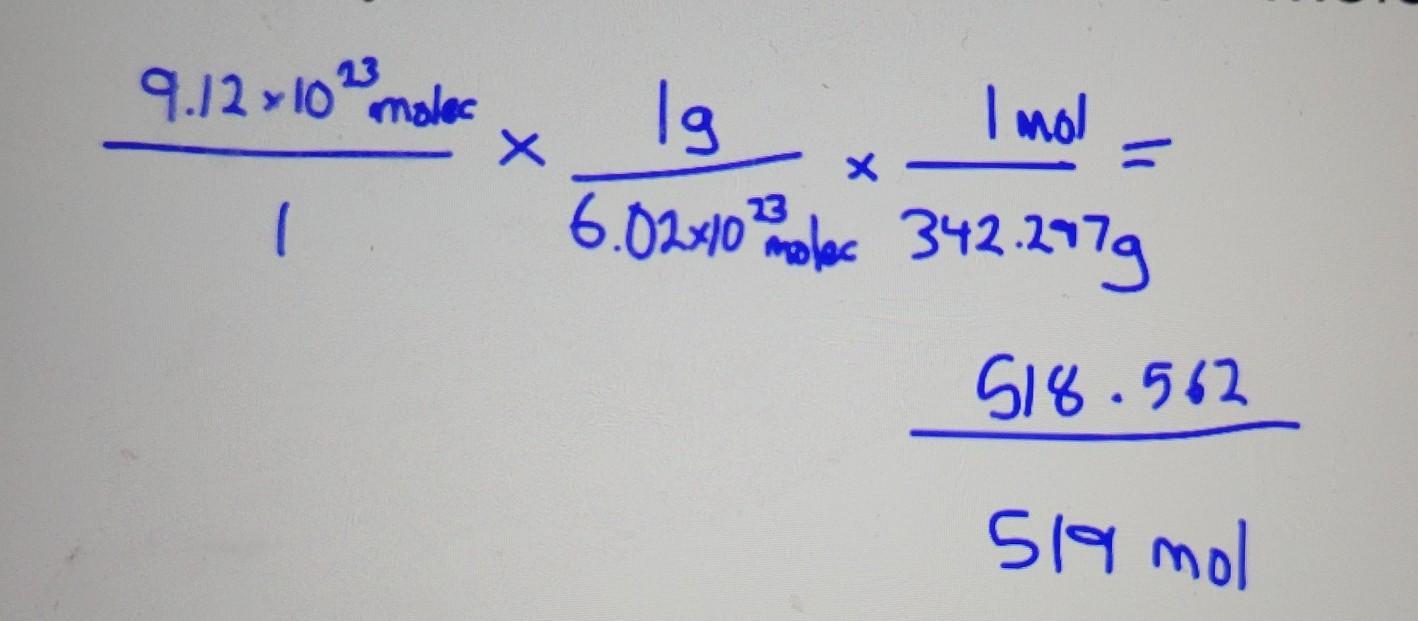 9.12×10²³ molec × 1g × 1 mol =
1 6.02×10²³ molec 342.297g
518.562
519 mol